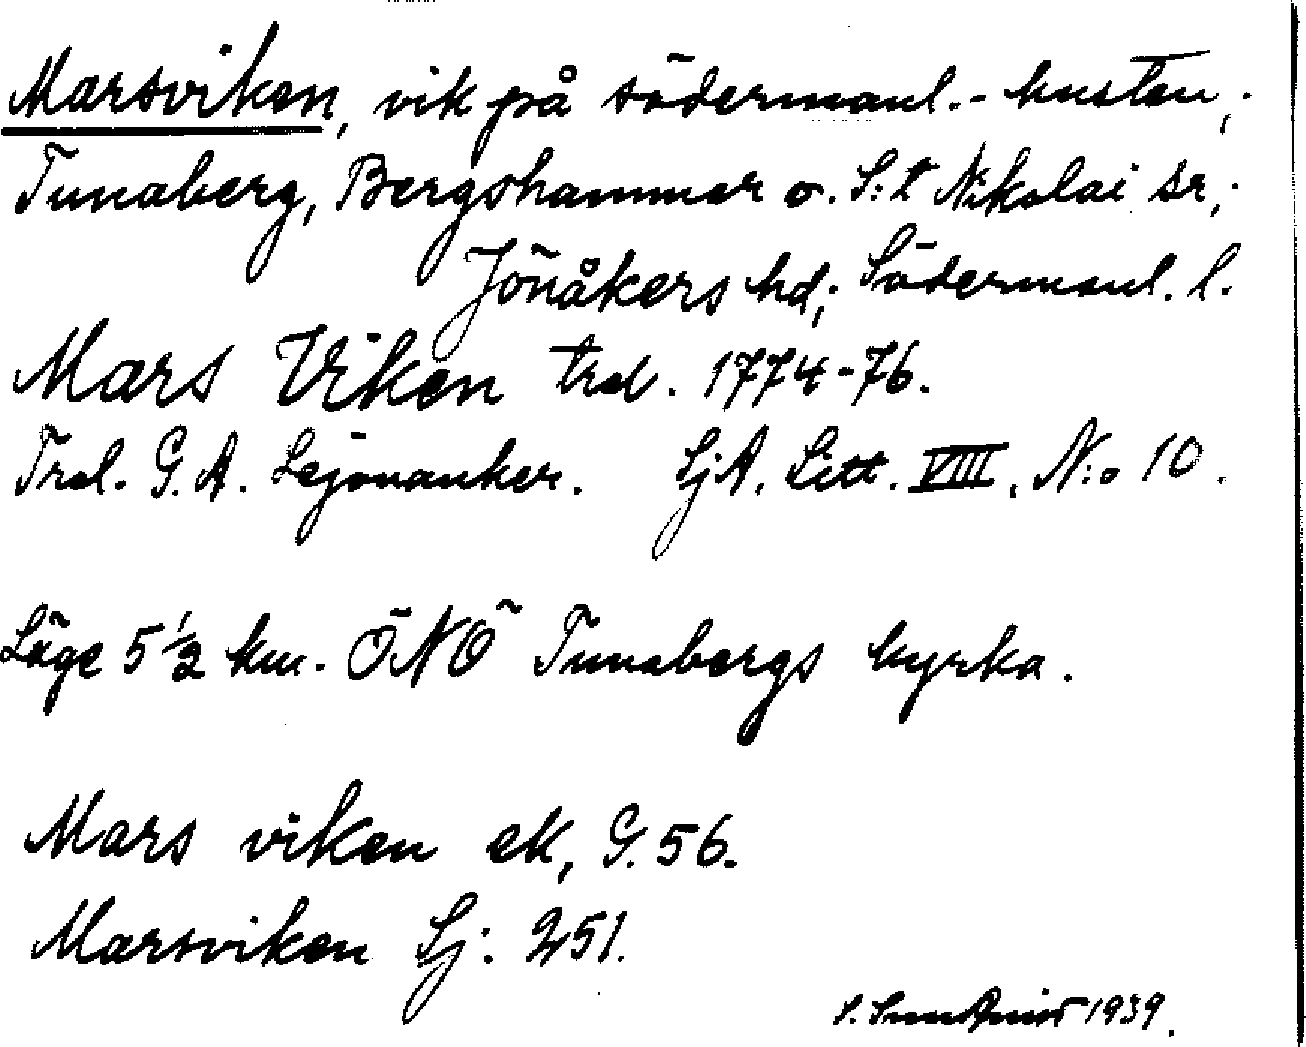 Marsviken, vik på södermanl.-kusten,;
Tunaberg, Bergshammar o. S:t Nikolai sr,;
Jönåkers hd,; Södermanl. l.
Mars Viken trol. 1774-76.
Trol. G. A. Lejonanker. SjA. Litt. VIII, N:o 10.
Läge 5 1/2 km. ÖNÖ Tunabergs kyrka.
Mars viken ek, G. 56.
Marsviken Sj: 251.
S. 1939.